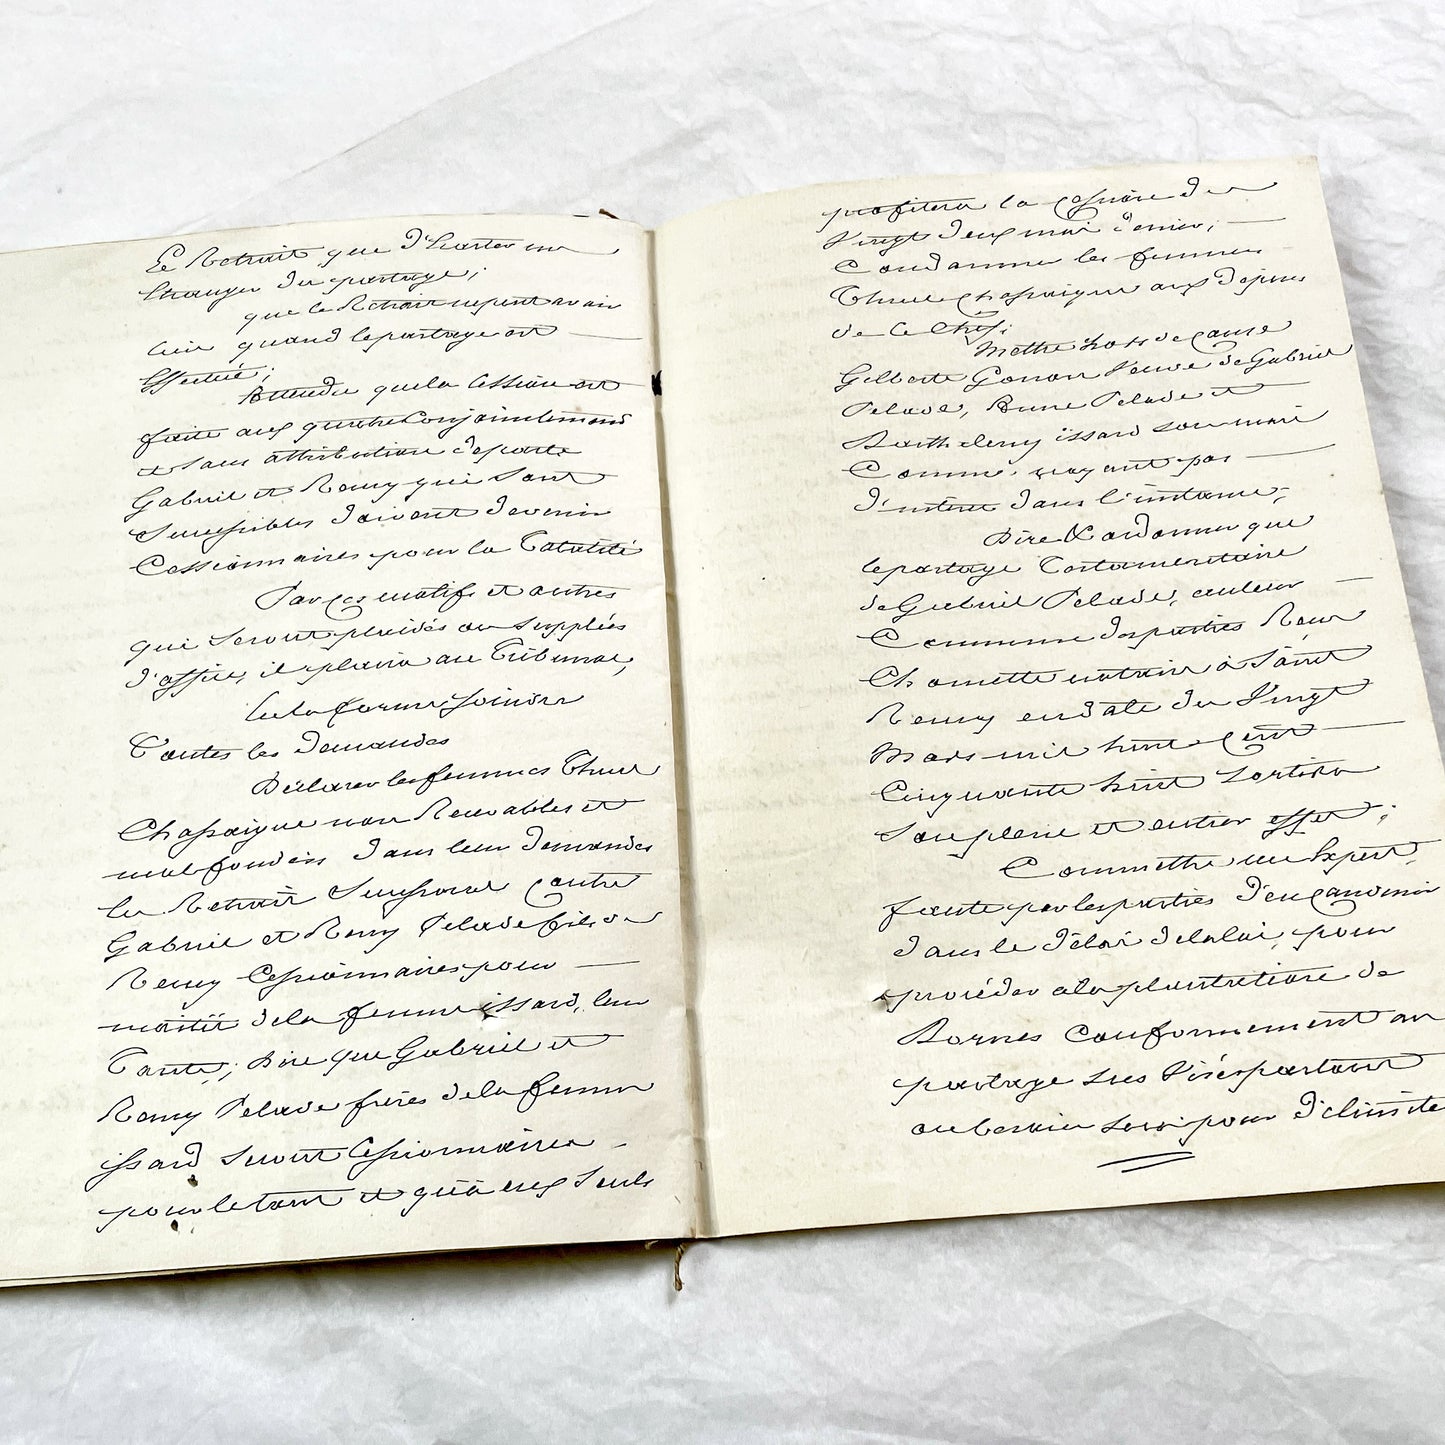 Le Retrait que d'Ecarter un
Etranger du partage;
que le Retrait ne peut avoir
lieu quand le partage est
Effectué;
Attendu que la Cession est
faite aux quatre Conjointement
et Sans attribution de parts
Gabriel et Remy qui Sont
Successibles doivent devenir
Cessionnaires pour la Totalité
Par ces motifs et autres
qui Seront plaidés ou Suppléés
d'office, il plaira au Tribunal,
En la forme Joindre
Toutes les Demandes
Déclarer les femmes Thuel
Chassaigne non Recevables et
mal fondées dans leur Demandes
en Retrait Successoral Contre
Gabriel et Remy Pelade fils de
Remy Cessionnaires pour
moitié de la femme issard, leur
Tante; Dire que Gabriel et
Remy Pelade frères de la femme
issard Seront Cessionnaires
pour le tout et qu'à eux Seuls
profitera la Cession du
Vingt deux mai dernier;
Condamner les femmes
Thuel Chassaigne aux Dépens
de ce Chef;
Mettre hors de Cause
Gilberte Gonon Veuve de Gabriel
Pelade, Anne Pelade et
Barthelemy issard Son mari
Comme n'ayant pas
d'intérêt dans l'instance;
Dire & ordonner que
le partage Testamentaire
de Gabriel Pelade, auteur
Commun des parties Reçu
Chomette notaire à Saint
Remy en date du Vingt
Mars mil huit Cent
Cinquante huit Sortira
Son plein et entier effet;
Commettre un Expert,
faute par les parties d'en Convenir
dans le Délai de la loi, pour
procéder à la plantation de
Bornes Conformément au
partage sus Visé partout
ou besoin Sera pour délimiter